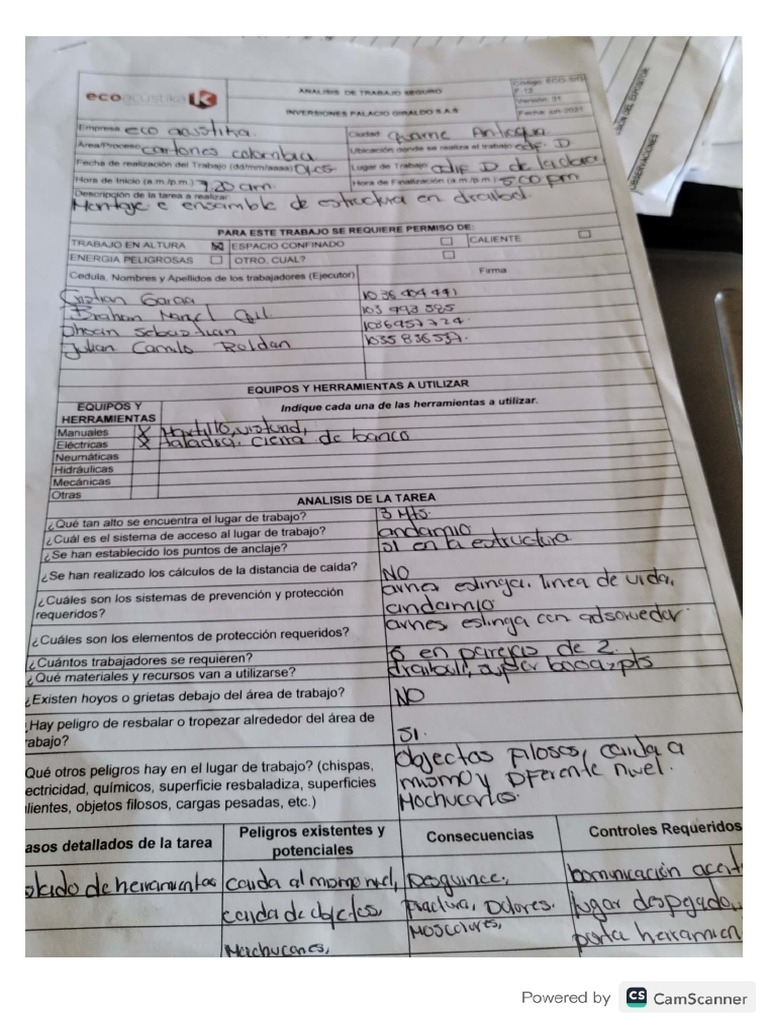 ecoacustika K
ANALISIS DE TRABAJO SEGURO
INVERSIONES PALACIO GIRALDO S.A.S
F-12
Versión: 01
Fecha: jun-2021
Empresa eco acustika.
Ciudad Antioquia
Área/Proceso cartones colombia
Ubicación donde se realiza el trabajo edif. D
Fecha de realización del Trabajo (dd/mm/aaaa) 01-05
Lugar de Trabajo edif D de
Hora de Inicio (a.m/p.m.) 7.20 am.
Hora de Finalización (a.m/p.m) 5:00 pm
Descripción de la tarea a realizar:
Montaje e ensamble de estructura en draibol.
PARA ESTE TRABAJO SE REQUIERE PERMISO DE:
TRABAJO EN ALTURA X ESPACIO CONFINADO CALIENTE
ENERGIA PELIGROSAS OTRO, CUAL?
Cedula, Nombres y Apellidos de los trabajadores (Ejecutor) Firma
Cristian Garcia 1036404441
Brahan 103 993 585
Jhoan Sebastian 1036957724
Julian Camilo Roldan 1035836537.
EQUIPOS Y HERRAMIENTAS A UTILIZAR
EQUIPOS Y HERRAMIENTAS
Indique cada una de las herramientas a utilizar.
Manuales X Martillo,
Eléctricas X taladro, cierra de banco
Neumáticas
Hidráulicas
Mecánicas
Otras
ANALISIS DE LA TAREA
¿Qué tan alto se encuentra el lugar de trabajo? 3 Mts.
¿Cuál es el sistema de acceso al lugar de trabajo? andamio
¿Se han establecido los puntos de anclaje? si en la estructura
¿Se han realizado los cálculos de la distancia de caída? NO
¿Cuáles son los sistemas de prevención y protección
requeridos?
arnes eslinga. linea de vida,
andamio
¿Cuáles son los elementos de protección requeridos? arnes eslinga con
¿Cuántos trabajadores se requieren? 6 en parejas de 2.
¿Qué materiales y recursos van a utilizarse?
¿Existen hoyos o grietas debajo del área de trabajo? NO
¿Hay peligro de resbalar o tropezar alrededor del área de
rabajo?
SI.
Qué otros peligros hay en el lugar de trabajo? (chispas,
ectricidad, químicos, superficie resbaladiza, superficies
lientes, objetos filosos, cargas pesadas, etc.)
Objectos filosos, caida a
mismo y Diferente nivel.
Machucones.
asos detallados de la tarea
Peligros existentes y
potenciales
Consecuencias
Controles Requeridos
de herramientas
caida al mismo nivel,
caida de objetos,
Machucones,
Desguince,
Fractura, Dolores.
Musculares,
komunicación acert
lugar despejado,
porta herramien
Powered by CS CamScanner